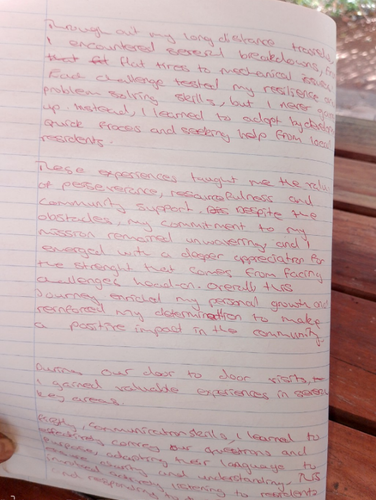 Through out my long distance travels,
I encountered several breakdowns, from
flat tires to mechanical issues
Each challenge tested my resilience and
problem solving skills, but I never gave
up. Instead, I learned to adapt by
quick fixes and seeking help from local
residents.
These experiences taught me the value
of perseverance, resourcefulness and
community support. Despite the
obstacles, my commitment to my
mission remained unwavering and I
emerged with a deeper appreciation for
the strenght that comes from facing
challenges head on. Overall this
Journey enriched my personal growth and
reinforced my determination to make
a positive impact in the community.
During our door to door visits,
I gained valuable experiences in
key areas.
Firstly, Communication skills, I learned to
effectively convey our questions and
purpose, adapting their language to
ensure clarity and understanding. This
involved actively listening to residents
and responding